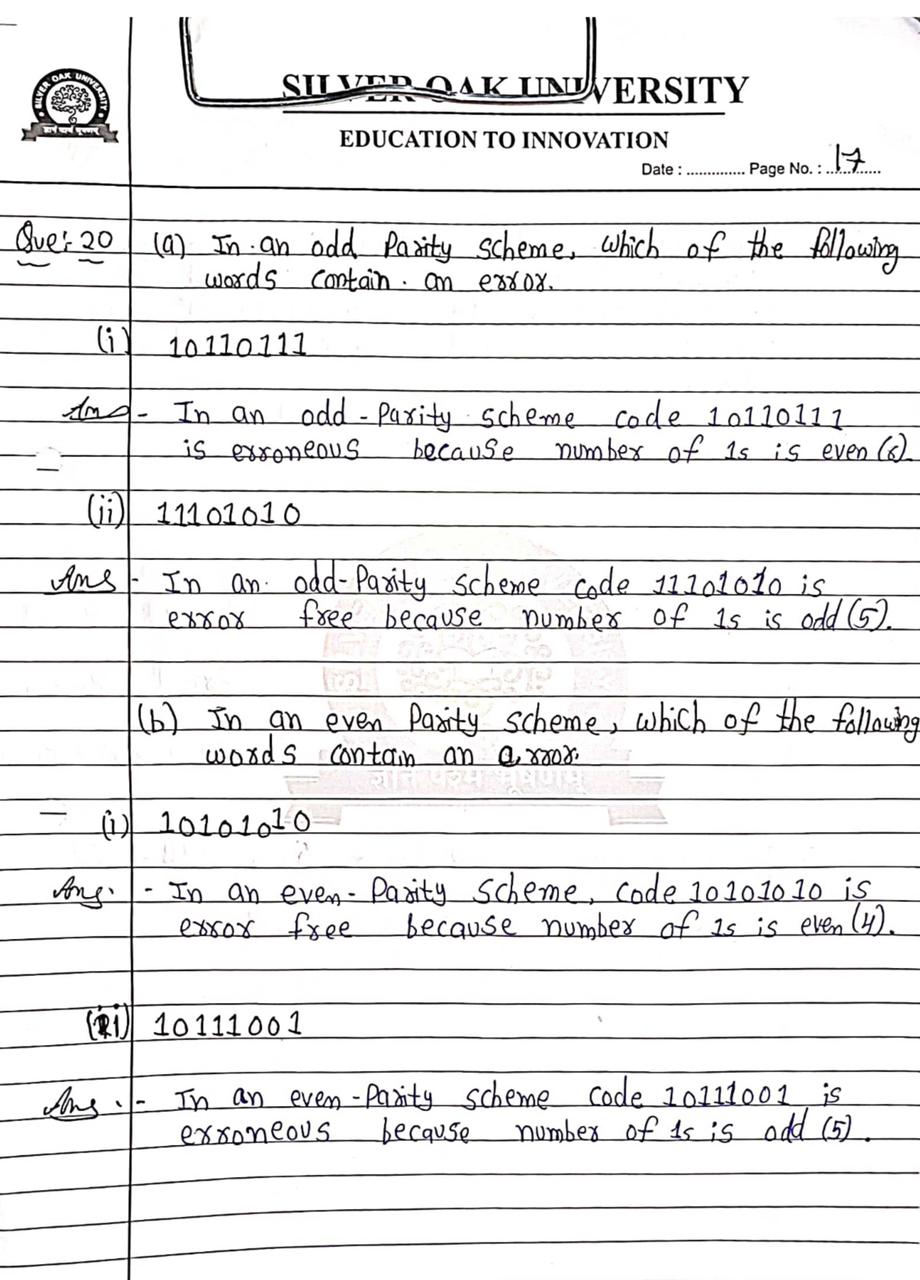 SILVER OAK UNIVERSITY
EDUCATION TO INNOVATION
SILVER OAK UNIVERSITY
Date : .............. Page No. : 17
Que:- 20 (a) In an odd Parity scheme, which of the following
words contain an error.
(i) 10110111
Ans - In an odd-Parity scheme code 10110111
is erroneous because number of 1s is even (6).
(ii) 11101010
Ans - In an odd-Parity scheme code 11101010 is
error free because number of 1s is odd (5).
(b) In an even Parity scheme, which of the following
words contain an error.
ज्ञानं परमं भूषणम्
(i) 10101010
Ans. - In an even-Parity scheme, code 10101010 is
error free because number of 1s is even (4).
(ii) 10111001
Ans. - In an even-Parity scheme code 10111001 is
erroneous because number of 1s is odd (5).